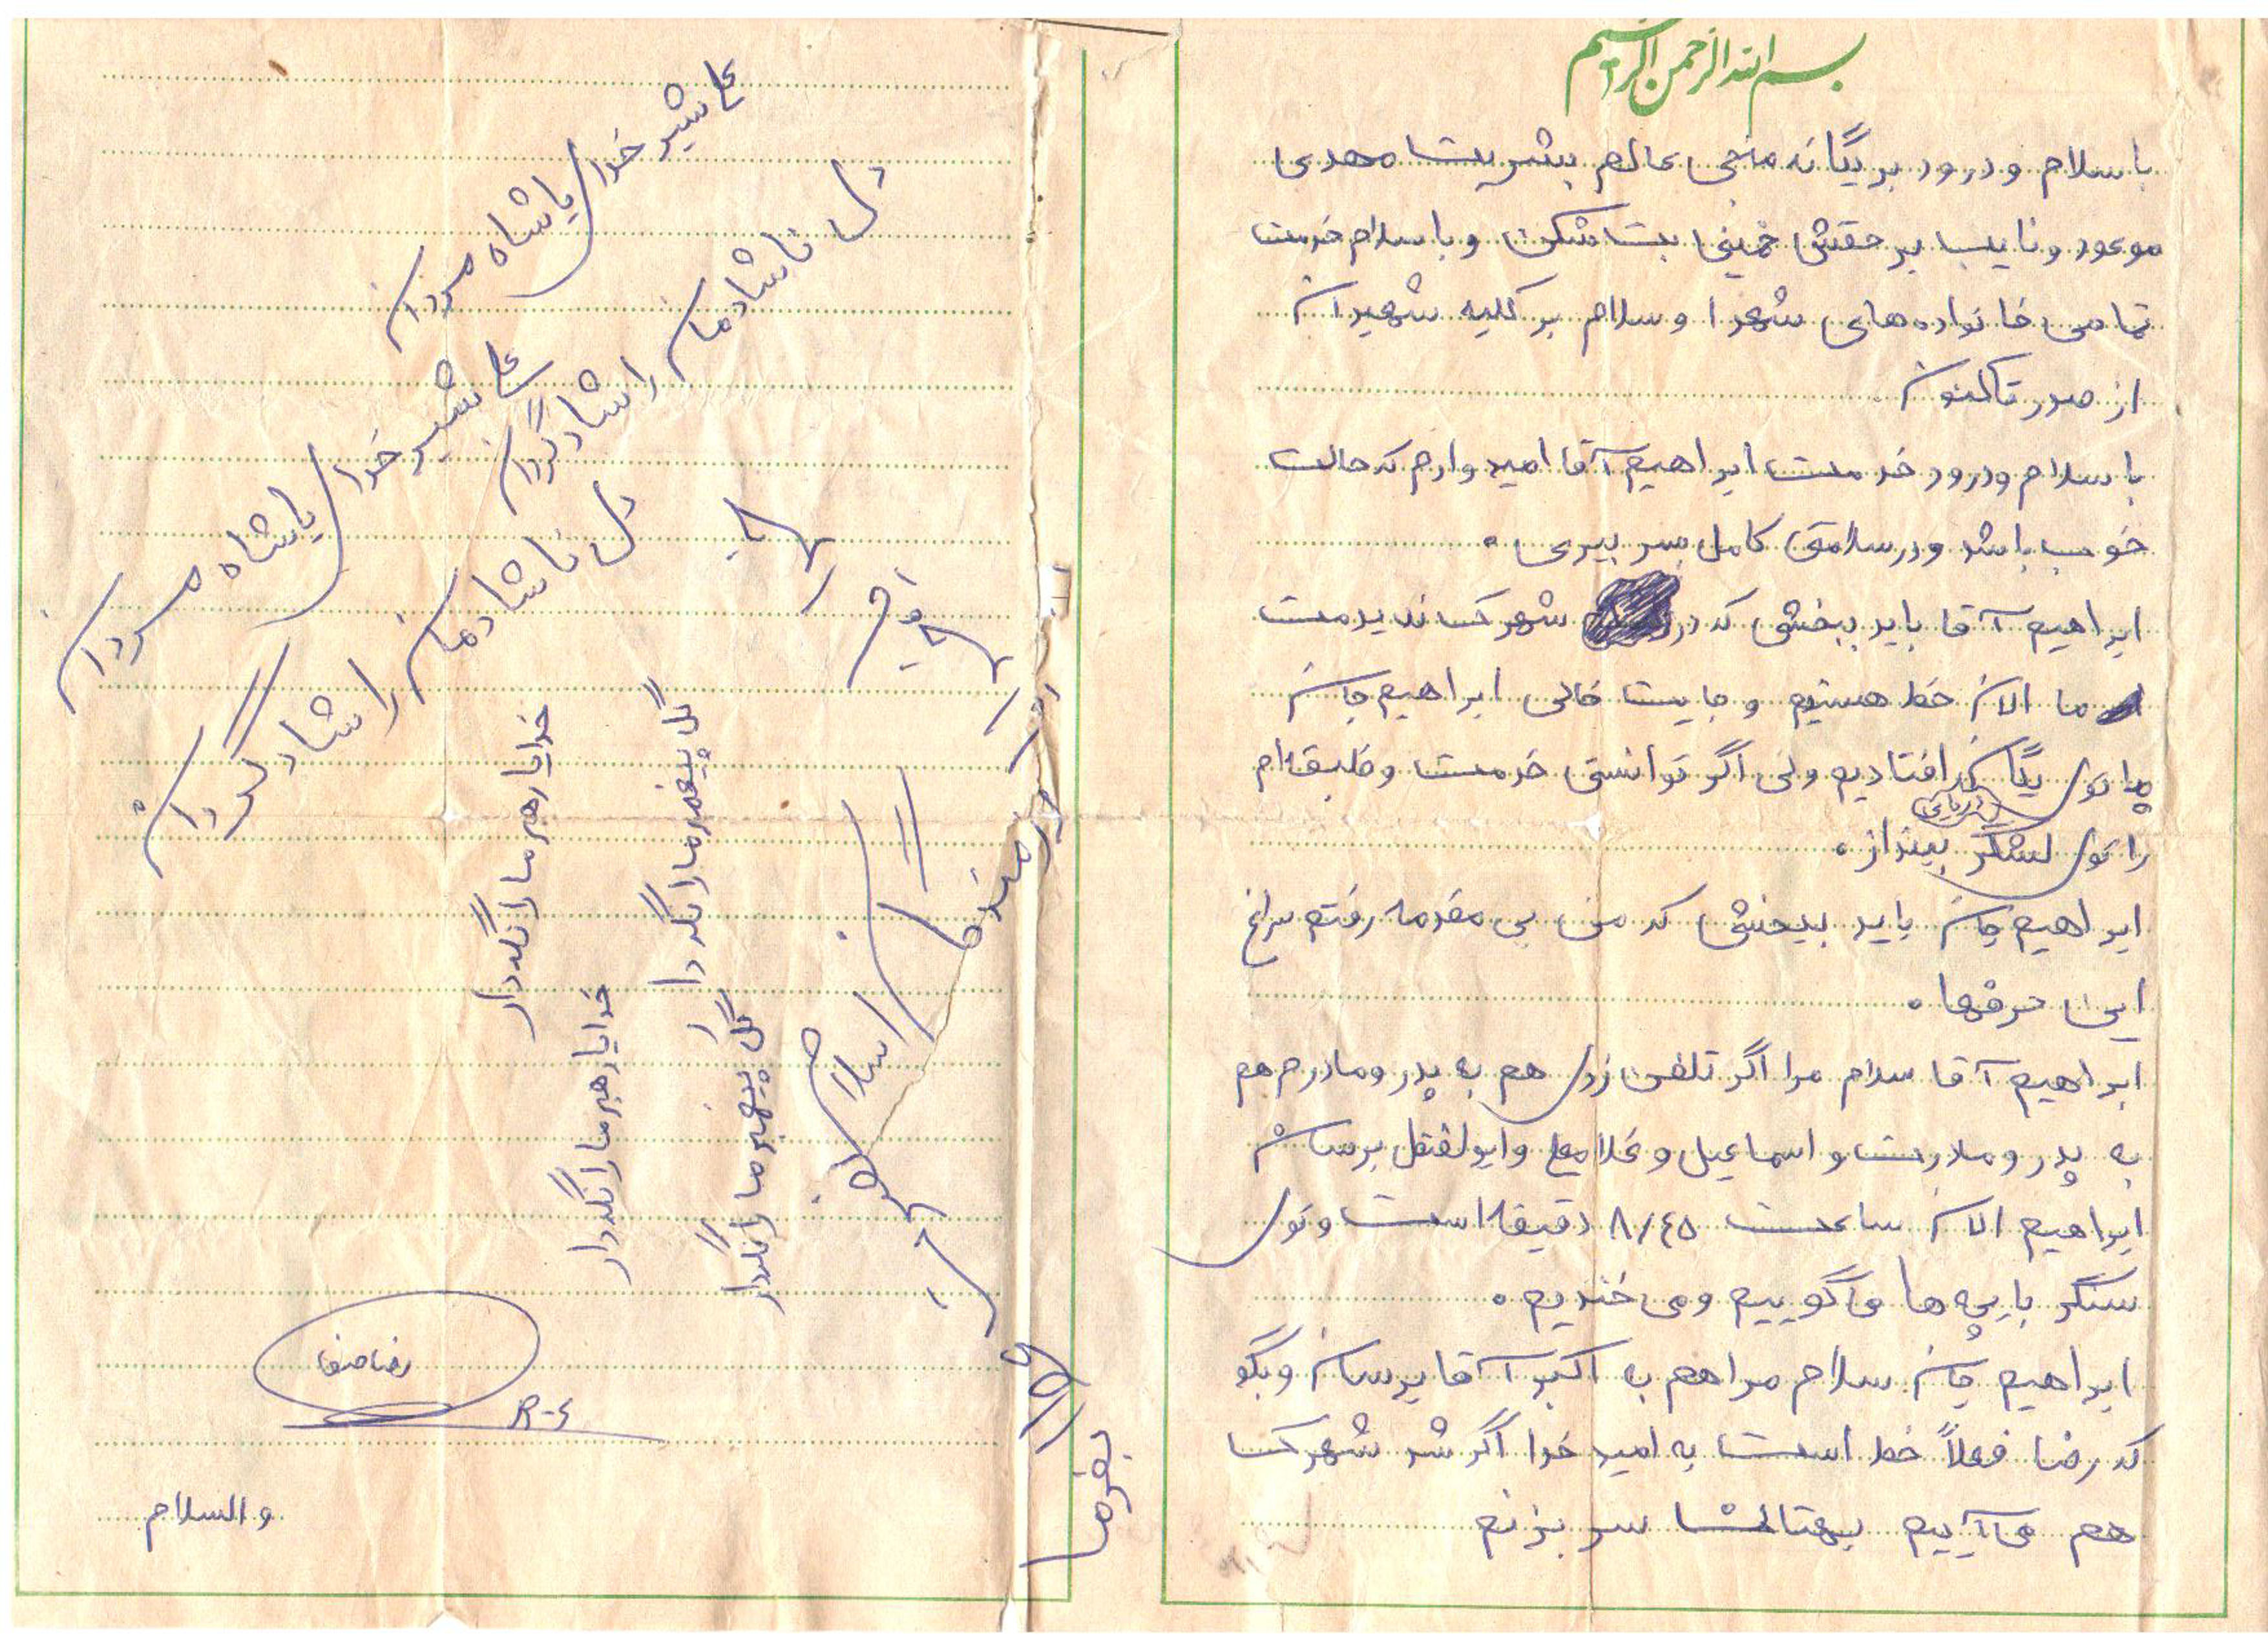 بسم الله الرحمن الرحیم
با سلام و درود بر یگانه منجی عالم بشریت مهدی
موعود و نایب بر حقش خمینی بت شکن و با سلام خدمت
تمامی خانواده های شهدا و سلام بر کلیه شهیدان
از صدر تاکنون
با سلام و درود خدمت ابراهیم آقا امیدوارم که حالت
خوب باشد و در سلامتی کامل بسر ببری.
ابراهیم آقا باید ببخشی که در شهرک ندیدمت
ما الان خط هستیم و جایت خالی ابراهیم جان
ما توی یگان افتادیم ولی اگر توانستی خدمت وظلیقه ام
را توی لشگر بینداز.
ابراهیم جان باید ببخشی که من بی مقدمه رفتم سراغ
این حرفها.
ابراهیم آقا سلام مرا اگر تلفن زدی هم به پدر و مادرم هم
به پدر و مادرت و اسماعیل و غلامعلی و ابولفضل برسان
ابراهیم الان ساعت ۸/۴۵ دقیقه است و توی
سنگر با بچه ها می گوییم و می خندیم.
ابراهیم جان سلام مرا هم به اکبر آقا برسان و بگو
که رضا فعلاً خط است به امید خدا اگر شد شهرک
هم می آییم بهتان سر بزنم
علی شیر خدا یا شاه مردان
دل ناشادمان را شاد گردان
علی شیر خدا یا شاه مردان
دل ناشادمان را شاد گردان
خدایا رهبر ما را نگهدار
گل پیغمبر ما را نگهدار
خدایا رهبر ما را نگهدار
گل پیغمبر ما را نگهدار
رزمندگان
اسلام
بفرما
رضا
والسلام